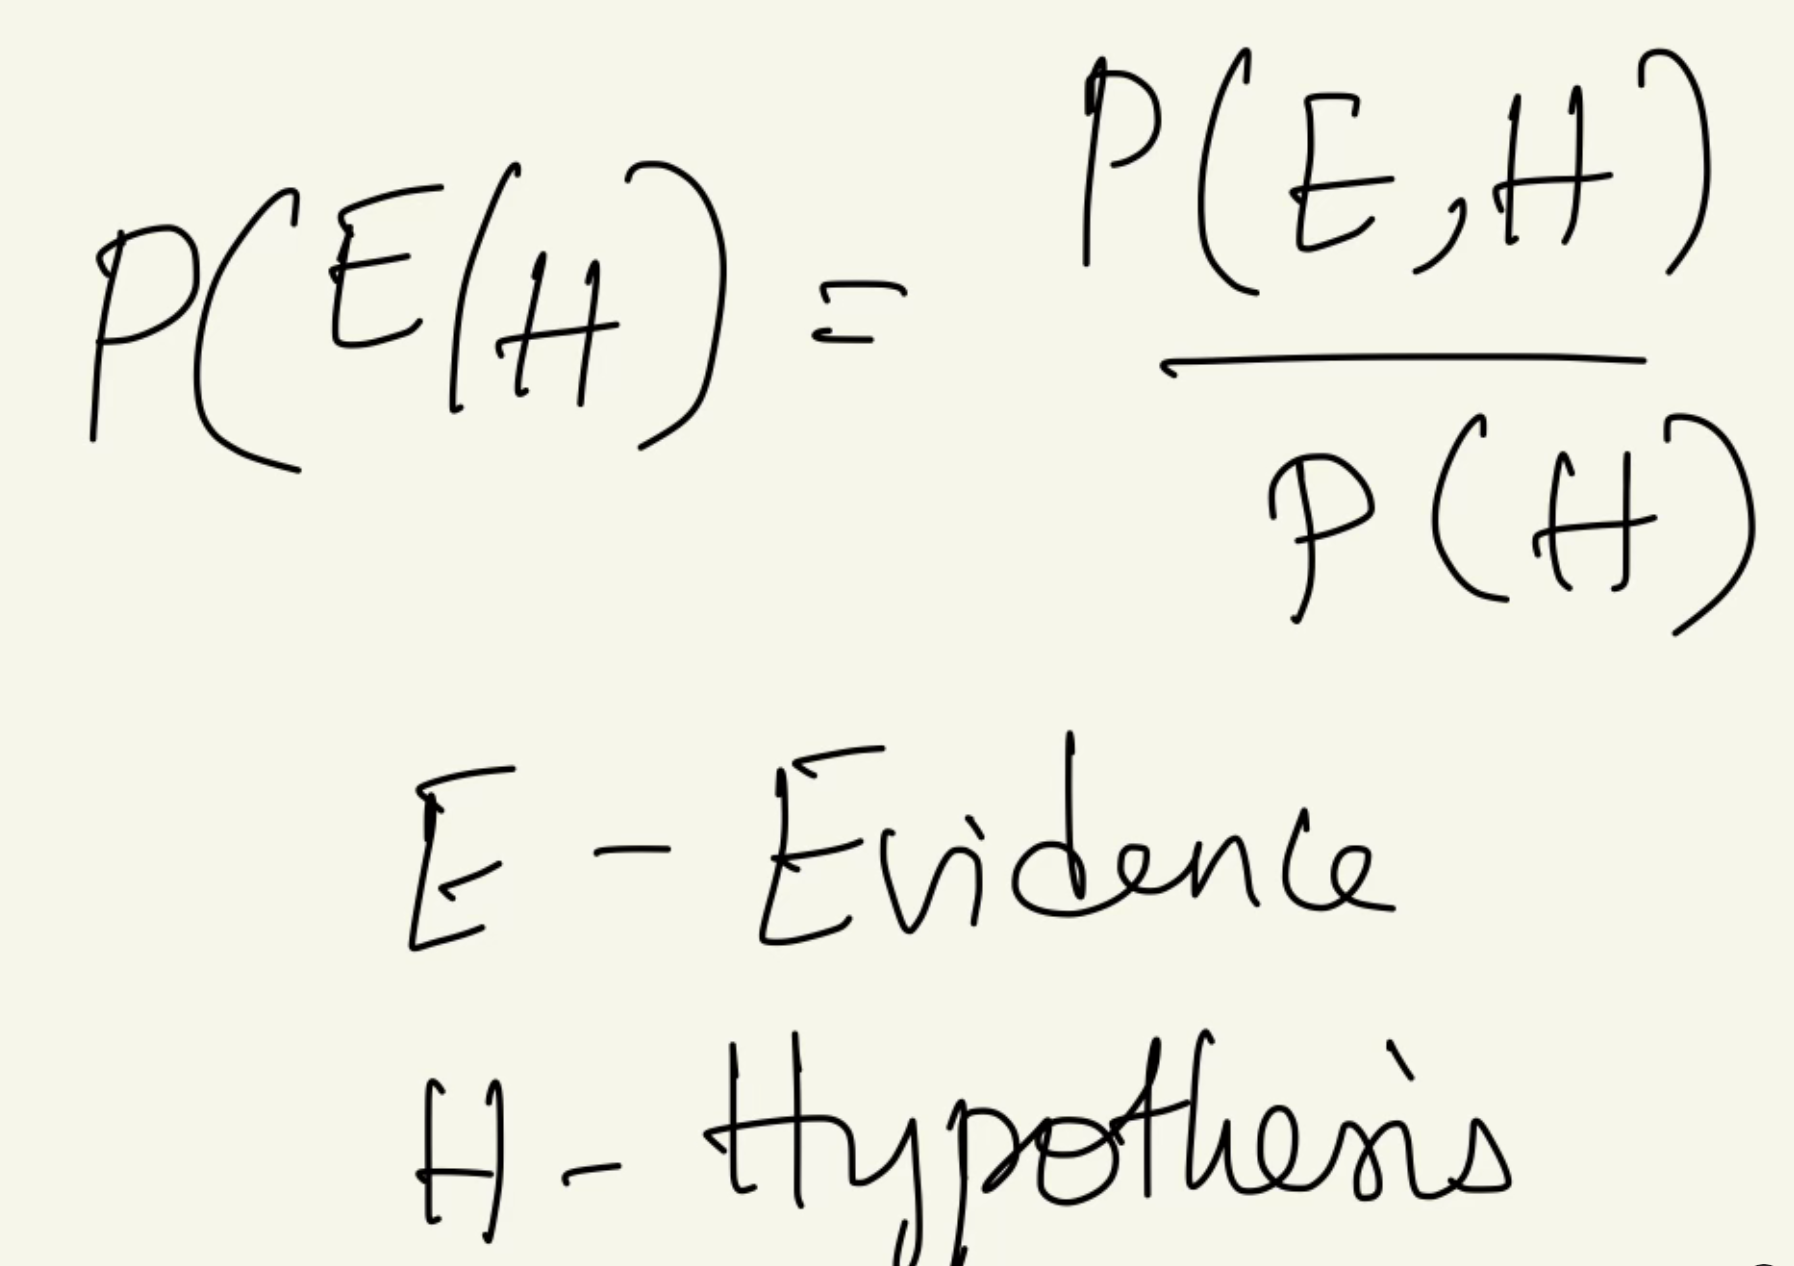 P(E|H) = P(E,H) / P(H)
E - Evidence
H - Hypothesis